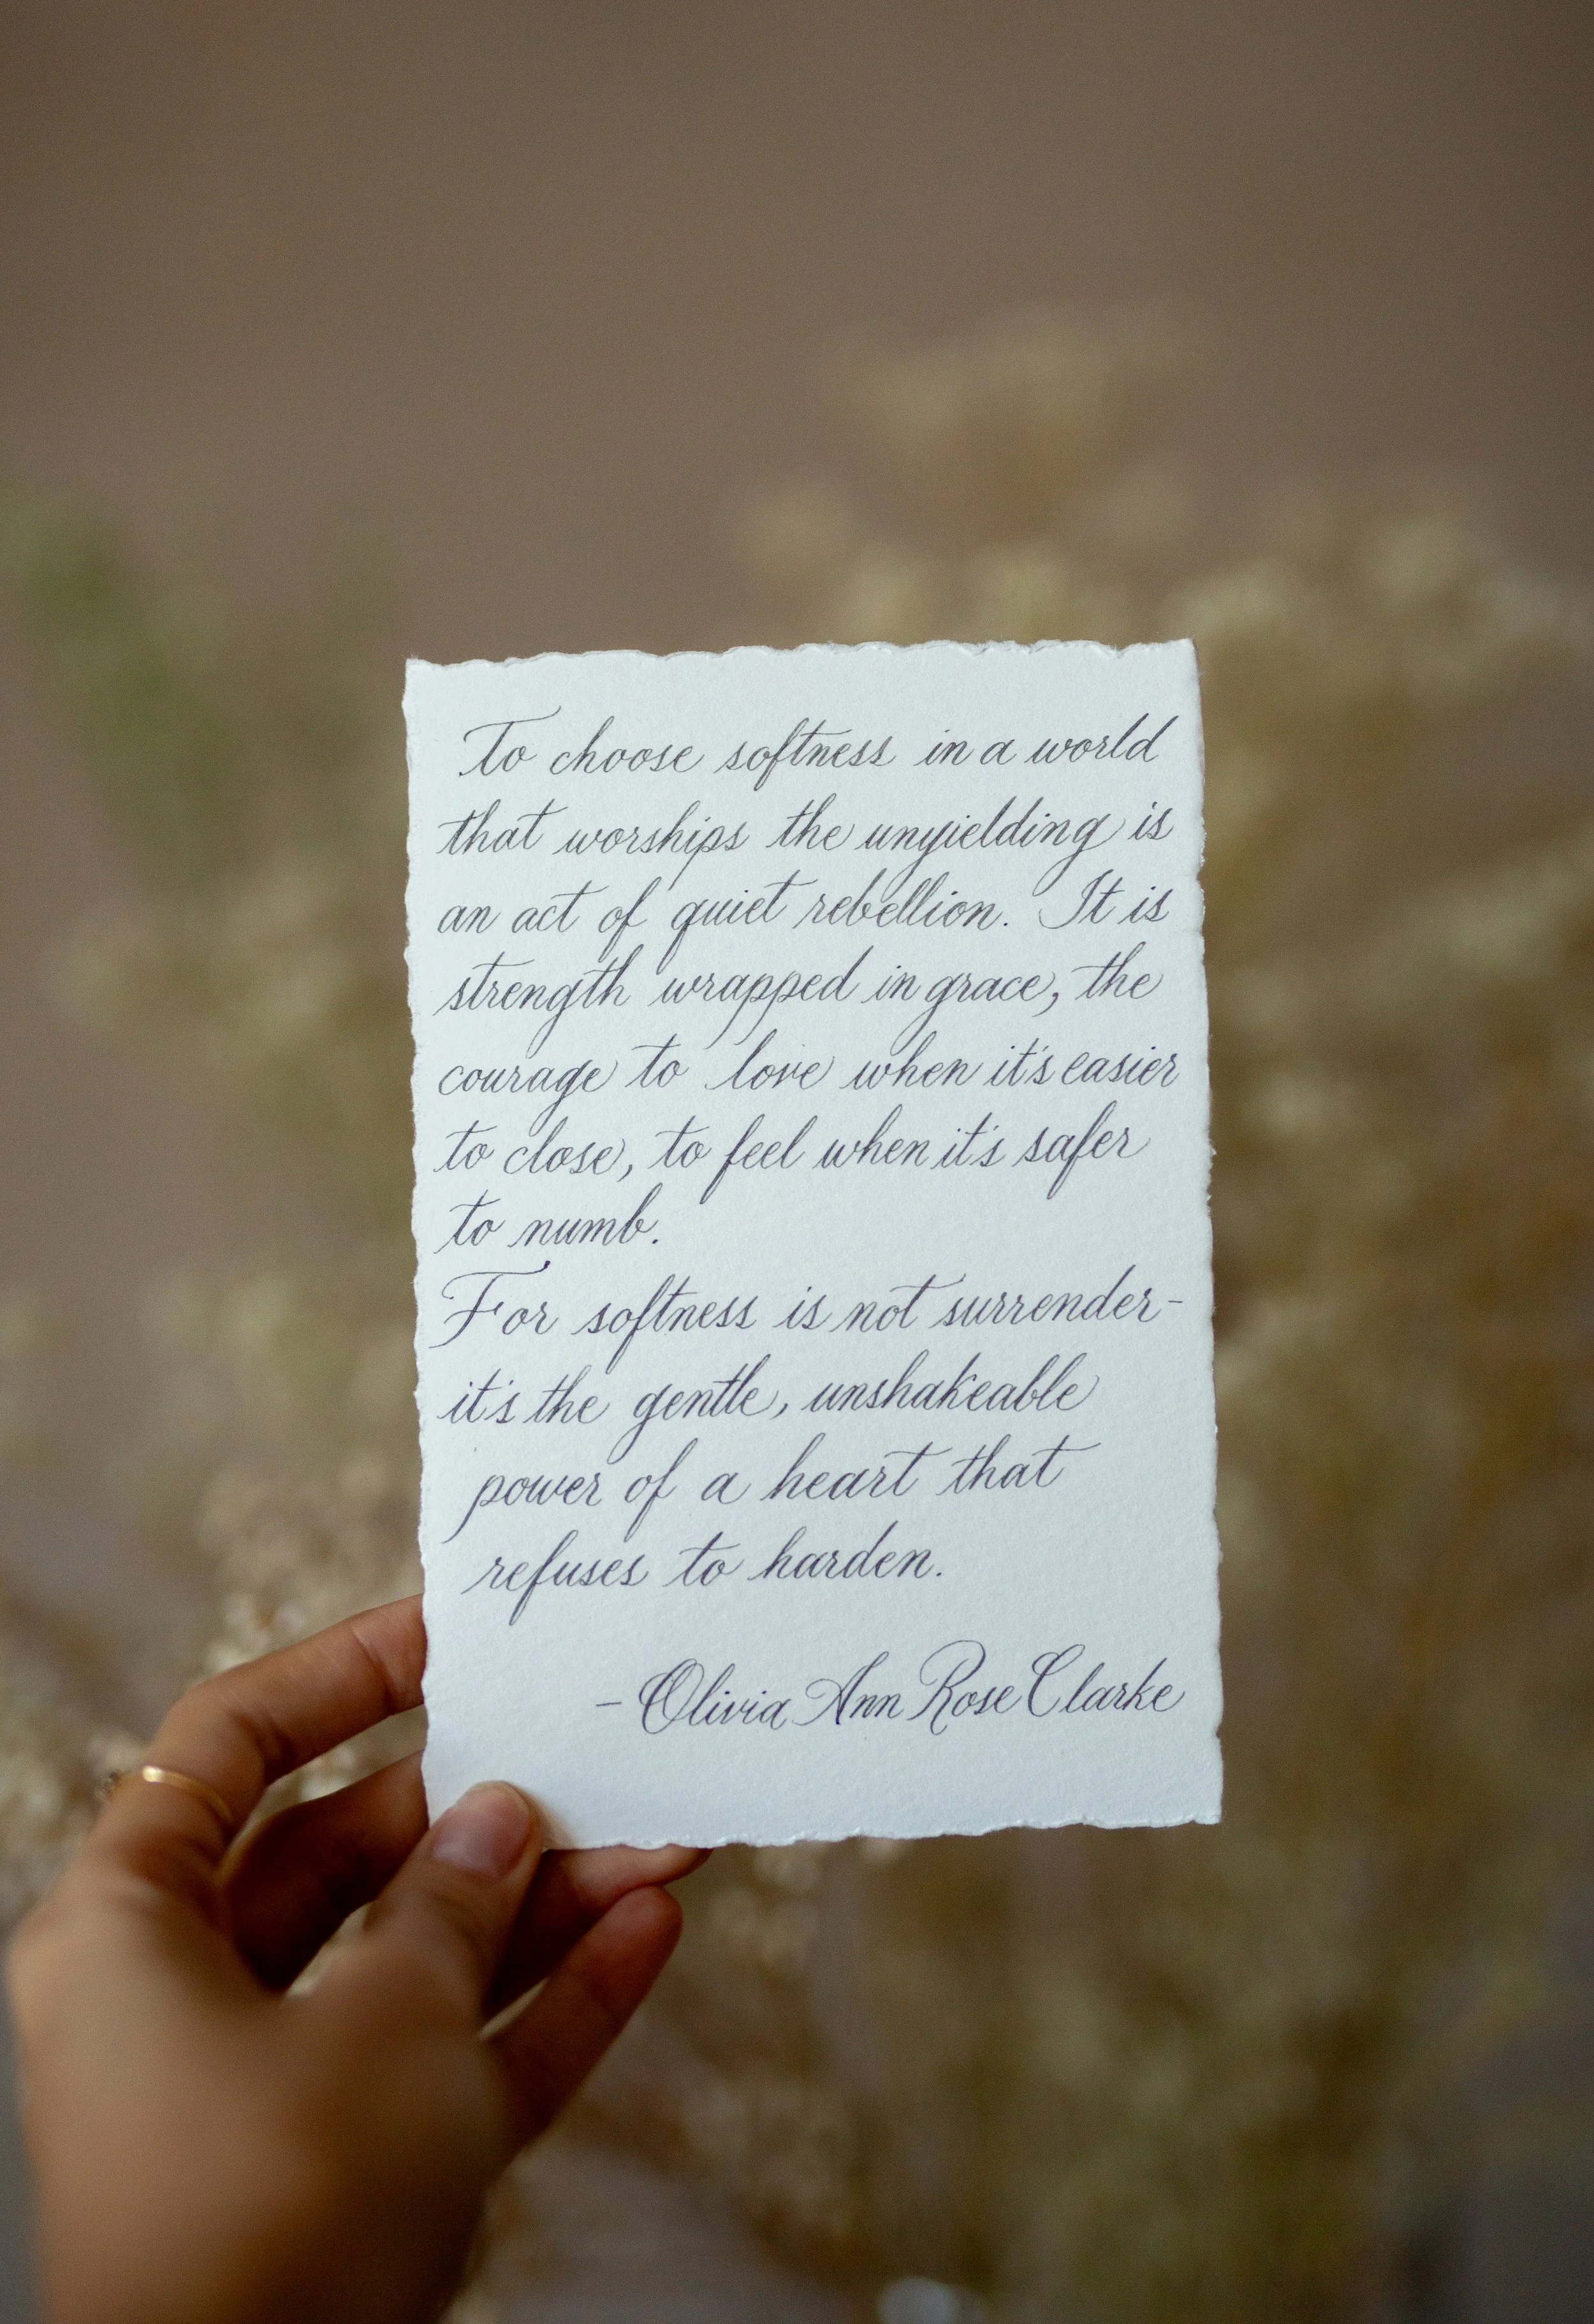 To choose softness in a world
that worships the unyielding is
an act of quiet rebellion. It is
strength wrapped in grace, the
courage to love when it's easier
to close, to feel when it's safer
to numb.
For softness is not surrender-
it's the gentle, unshakeable
power of a heart that
refuses to harden.
- Olivia Ann Rose Clarke